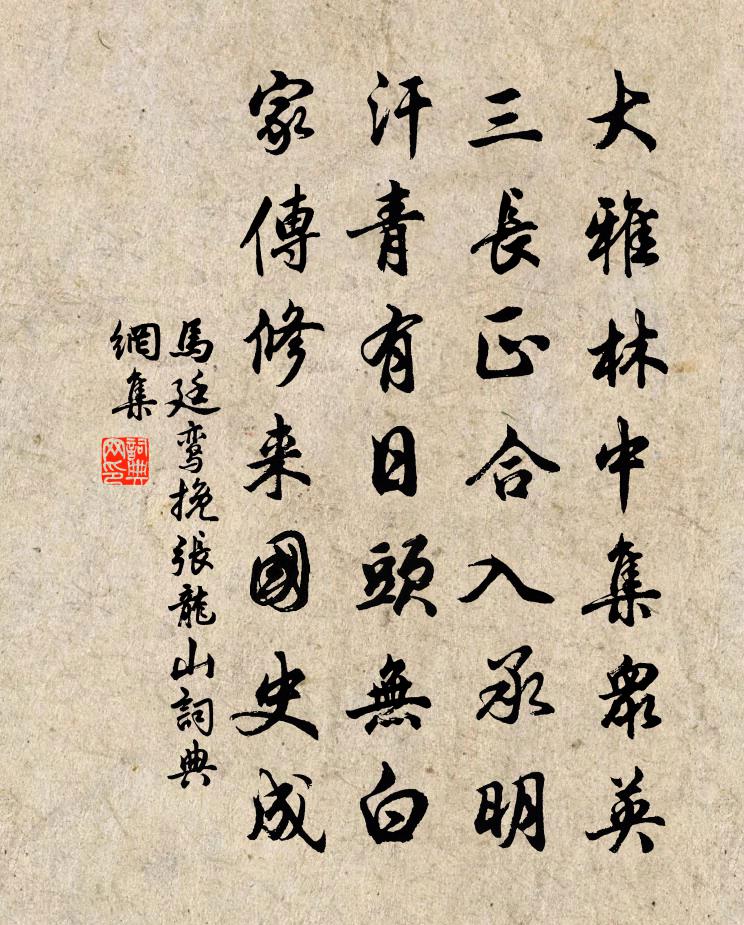 大雅林中集眾英
三長正合入承明
汗青有日頭無白
家傳修来國史成
馬廷鸾挽張龍山詞典
網集
詞典
网印